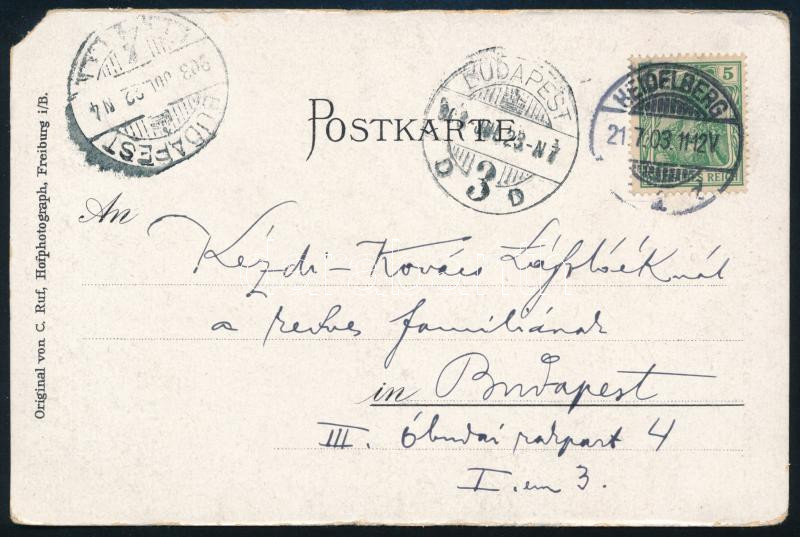 903 JUL 22 N4
BUDAPEST
BUDAPEST
23-N
3
D D
5
REICH
HEIDELBERG
21.7.03. 11-12V.
POSTKARTE
An
Kézdi-Kovács Lászlóéknál
a kedves famíliának
in Budapest
III. Óbudai rakpart 4
I. em 3.
Original von C. Ruf, Hofphotograph, Freiburg i/B.